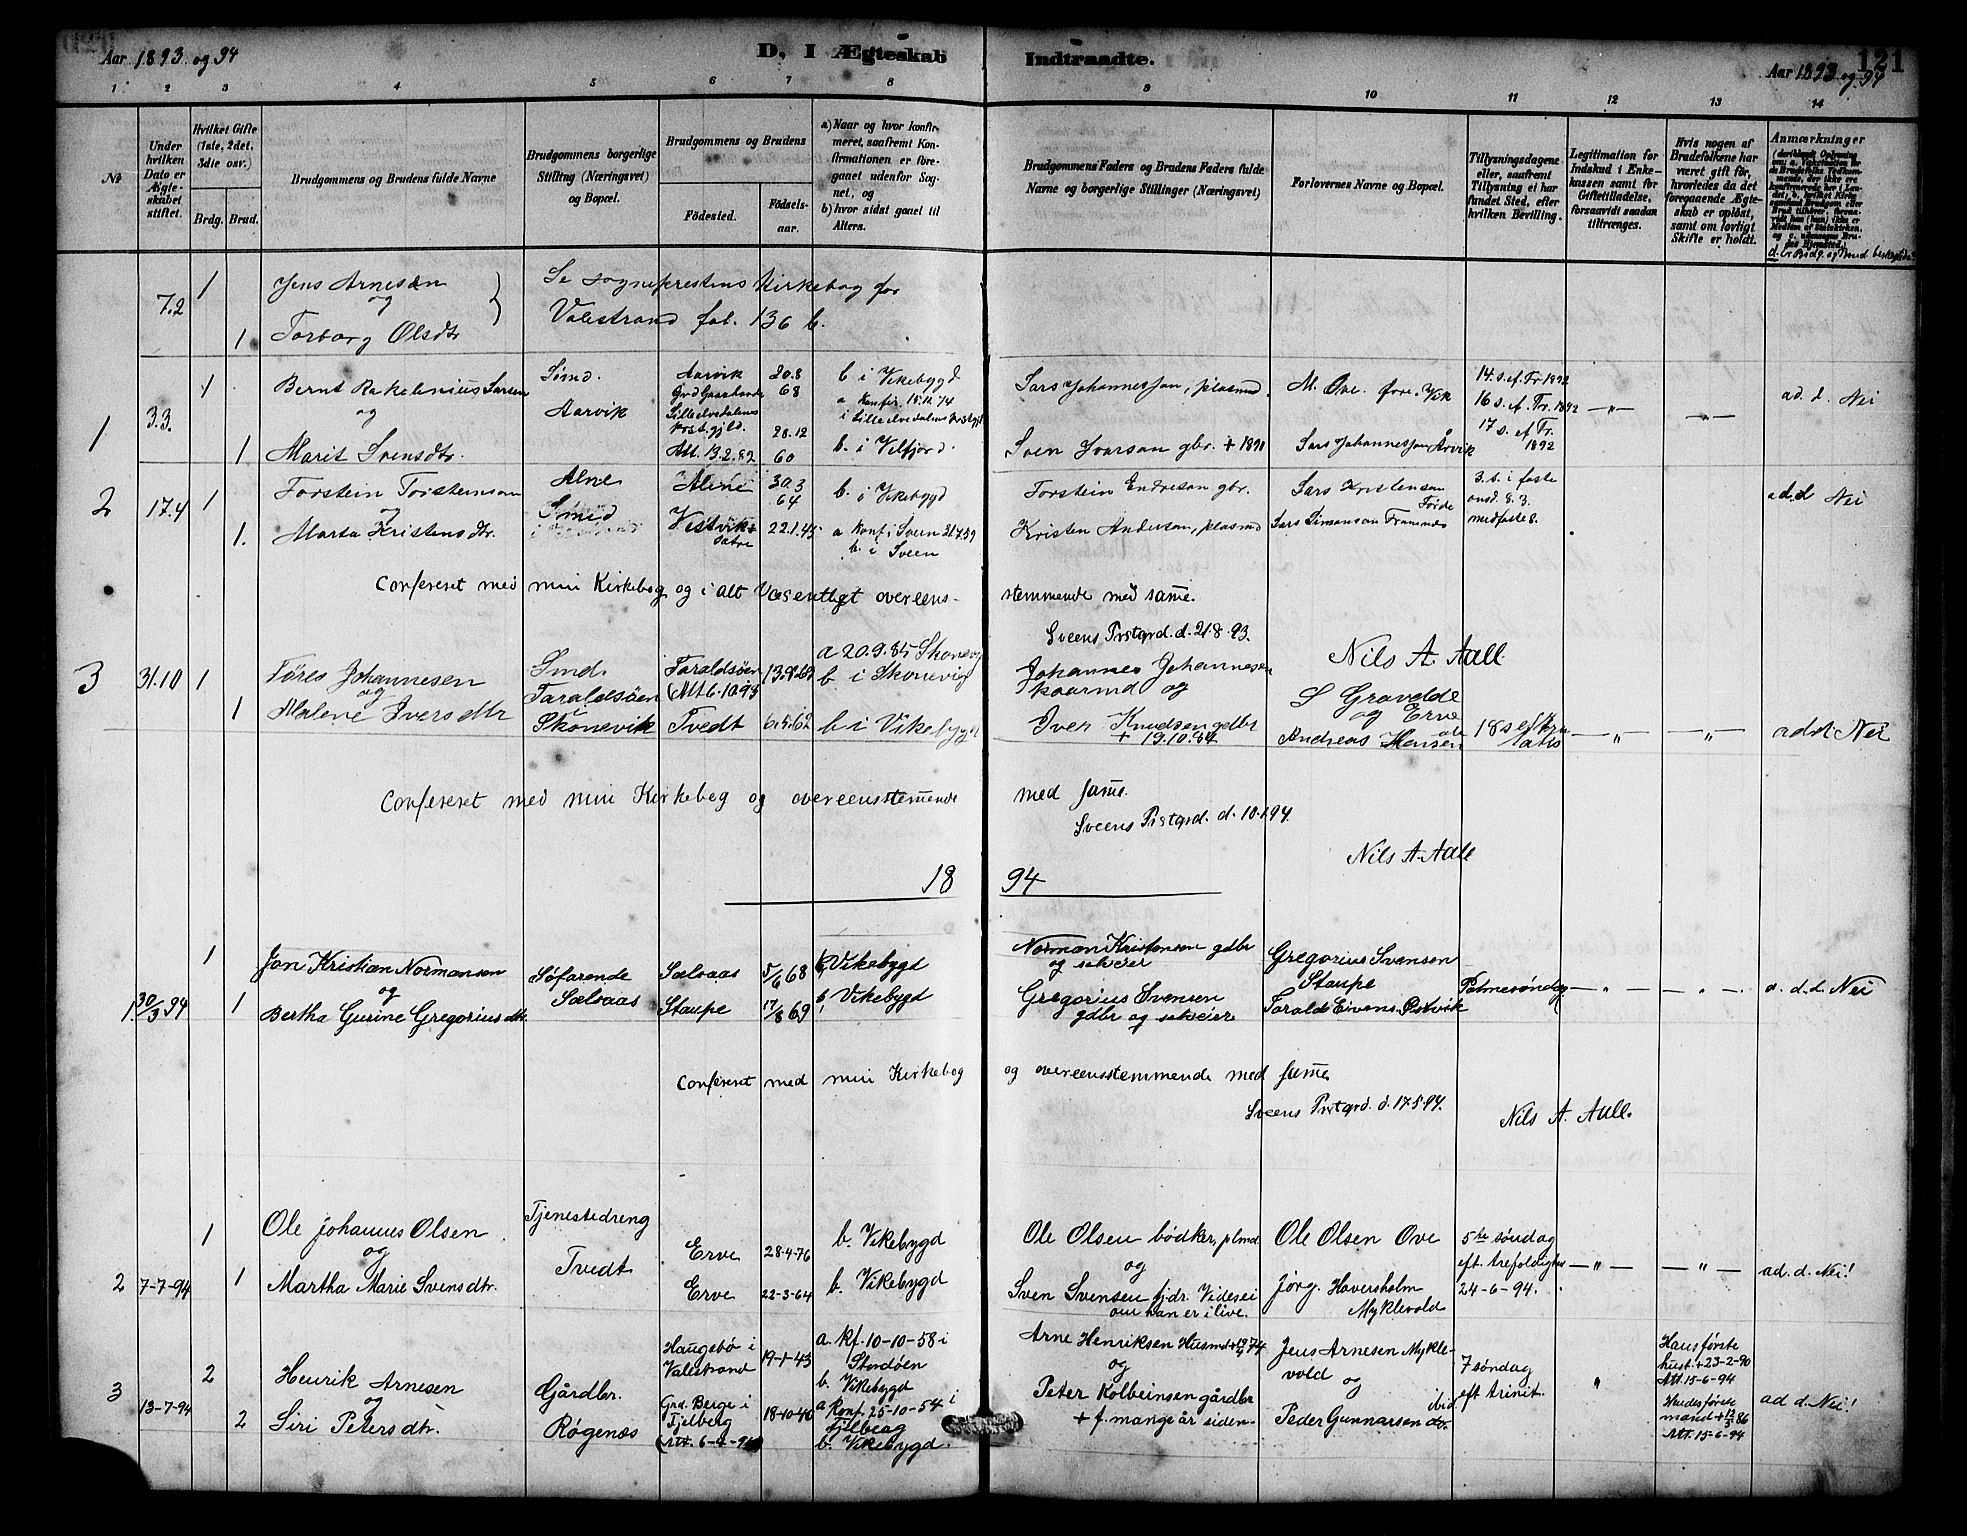 Aar 1893 og 94
D. I Ægteskab
Indtraadte.
Aar 1893 og 94
121
1 2 3 4 5 6 7 8 9 10 11 12 13 14
№
Under hvilken Dato er Ægteskabet stiftet.
Hvilket Gifte (1ste, 2det, 3die osv.)
Brdg. Brud.
Brudgommens og Brudens fulde Navne
Brudgommens borgerlige Stilling (Næringsvei) og Bopæl.
Brudgommens og Brudens
Födested.
Födselsaar.
a) Naar og hvor konfirmeret, saafremt Konfirmationen er foregaaet udenfor Sognet, og
b) hvor sidst gaaet til Alters.
Brudgommens Faders og Brudens Faders fulde Navne og borgerlige Stillinger (Næringsvei)
Forlovernes Navne og Bopæl.
Tillysningsdagene eller, saafremt Tillysning ei har fundet Sted, efter hvilken Bevilling.
Legitimation for Indskud i Enkekassen samt for Giftetilladelse, forsaavidt saadan tiltrænges.
Hvis nogen af Brudefolkene har været gift för, hvorledes da det foregaaende Ægteskab er oplöst, samt om lovligt Skifte er holdt.
Anmærkninger
7.2 1 Jens Arnesen
og
1 Torborg Olsdtr
Se sogneprestens Kirkebog for
Valestrand fol. 136 b.
1 3.3. 1 Bernt Rakelenius Larsen
og
1 Marit Svensdtr.
Smed.
Aarvik
Aarvik
20.8
68
28.12
60
Att. 13.2.92
b. i Vikebygd
a konfir. 15.11.74
b. i Vilfjord.
Lars Johannesson, plasmd.
Sven Ivarson gbr. + 1891
M. Ove, fore. Vik
Lars Johannesson Årvik
14. s. ef. Tr. 1892
16 s. ef. Tr. 1892
17 s. ef Tr.
1892
—„—
—„—
ad. d. Nei
2 17.4 1 Torstein Torsteinson
og
1. Marta Kristensdtr.
Alne
Smed
Alne
30.3
64
Vestvik
22.1.45
b. i Vikebygd
a konf i Sveen
b. i Sveen
Torstein Endreson gbr.
Kristen Anderson, plasmd
Lars Kristenson
Førde
Lars Simonson Framnes
3. s. i faste
onsd. 8. 3.
medfaste s.
ad.d Nei
Confereret med min Kirkebog og i alt Væsentligt overeens-
stemmende med same.
Sveens Prstgrd. d. 21.8.93.
Nils A. Aall
3 31.10 1 Tøres Johannesen
og
1 Malene Iversdtr
Smd.
Taraldsøen
Skonevik
Taraldsøen
(Att 6.10.93
Tvedt
6.5.62
a 20.9.85 Skonevig
b. i Skonevig
b i Vikebygd
Johannes Johannesen
og
Iver Knudsen gdbr
+ 19.10.84
S Gravelde
og Erve
Andreas Hansen
18 s eft
—„—
—„—
ad d Nei
Confereret med min Kirkebog og overeensstemmende
med same.
Sveens Prstgrd. d. 10.1.94.
Nils A. Aall
18 94
1. 30/3 94 1 Jon Kristian Normansen
og
1 Bertha Gurine Gregoriusdtr.
Søfarende
Sælsaas
Sælsaas
5/6 68
Staupe
17/8 69
b, Vikebygd
b, Vikebygd
Norman Kristensen gdbr
og selveier
Gregorius Svensen
gdbr og selveier
Gregorius Svensen
Staupe
Tarald Eivens. Østvik
Palmesøndag
—„—
—„—
a. d. d. Nei
Confereret med min Kirkebog
og overeensstemmende med same
Sveens Prstgrd. d. 17.5.94.
Nils A. Aall.
2 7-7-94 1 Ole Johannes Olsen
og
1 Martha Marie Svensdtr.
Tjenestedreng
Tvedt
Erve
28-4-76
Erve
22-3-64
b. Vikebygd
b. Vikebygd
Ole Olsen bødker, plmd
og
Sven Svensen fjdr. Videsei
om han er i live.
Ole Olsen Ove
Jørg. Haversholm
Myklevold
5te søndag
eft. trefoldighed
24-6-94.
—„—
—„—
ad. d. Nei!
3 13-7-94 2 Henrik Arnesen
og
2 Siri Petersdtr.
Gårdbr.
Røgenæs
Haugsbø i
Valestrand
19-1-43
Grd. Berge i
Fjelberg
(Att. 6-4-94)
18-10-40
a. kf. 10-10-58 i
Stordøen
b. Vikebygd
a konf. 25-10-54 i
Fjelberg
b. Vikebygd.
Arne Henriksen Husmd
og
Peter Kolbeinsen gårdbr
+ f. mange år siden-
Jens Arnesen Mykle-
vold og
ibid
Peder Gunnarsen do.
7 søndag
eft trinit.
„
Hans første
hust. + 23-2-90
Att. 15-6-94
Hendes første
mand + 12/3 86
Att. 15-6-94
ad d. Nei!